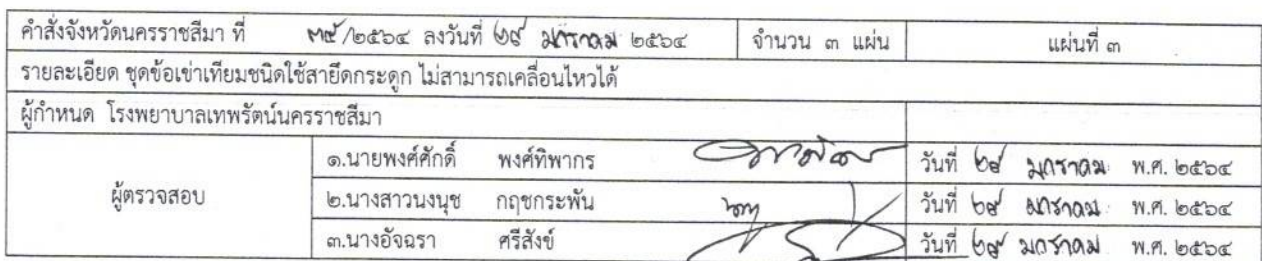 คำสั่งจังหวัดนครราชสีมา ที่ /๒๕๖๔ ลงวันที่ ๒๙ มกราคม ๒๕๖๔ จำนวน ๓ แผ่น แผ่นที่ ๓
รายละเอียด ชุดข้อเข่าเทียมชนิดใช้สายยึดกระดูก ไม่สามารถเคลื่อนไหวได้
ผู้กำหนด โรงพยาบาลเทพรัตน์นครราชสีมา
๑.นายพงศ์ศักดิ์ พงศ์ทิพากร วันที่ ๒๙ มกราคม พ.ศ. ๒๕๖๔
ผู้ตรวจสอบ ๒.นางสาวนงนุช กฤชกระพัน วันที่ ๒๙ มกราคม พ.ศ. ๒๕๖๔
๓.นางอัจฉรา ศรีสังข์ วันที่ ๒๙ มกราคม พ.ศ. ๒๕๖๔